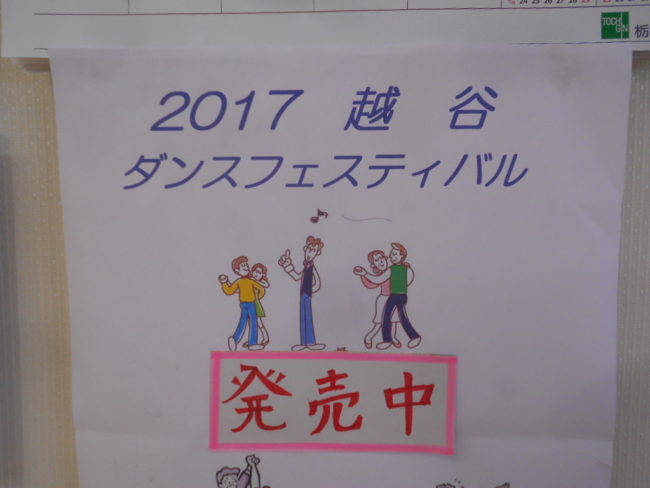 24 25 26 27 28
TOCHGIN 栃
2017 越 谷
ダンスフェスティバル
発売中